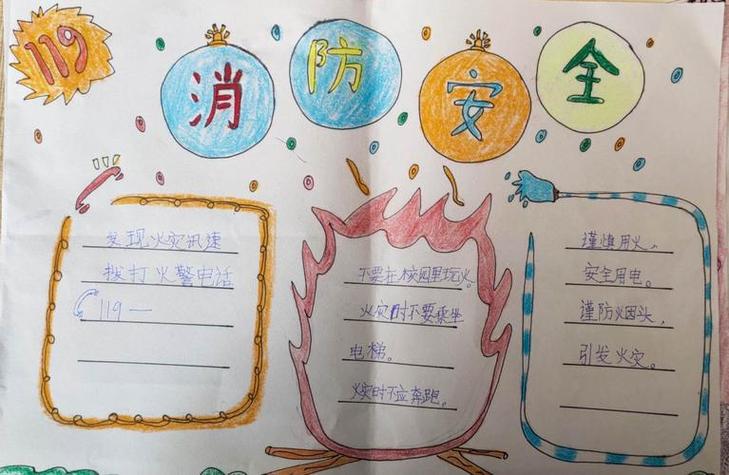 119
消防安全
发现火灾迅速
拨打火警电话
119一
不要在校园里玩火。
火灾时不要乘坐
电梯。
火灾时不应奔跑。
谨慎用火,
安全用电。
谨防烟头,
引发火灾。